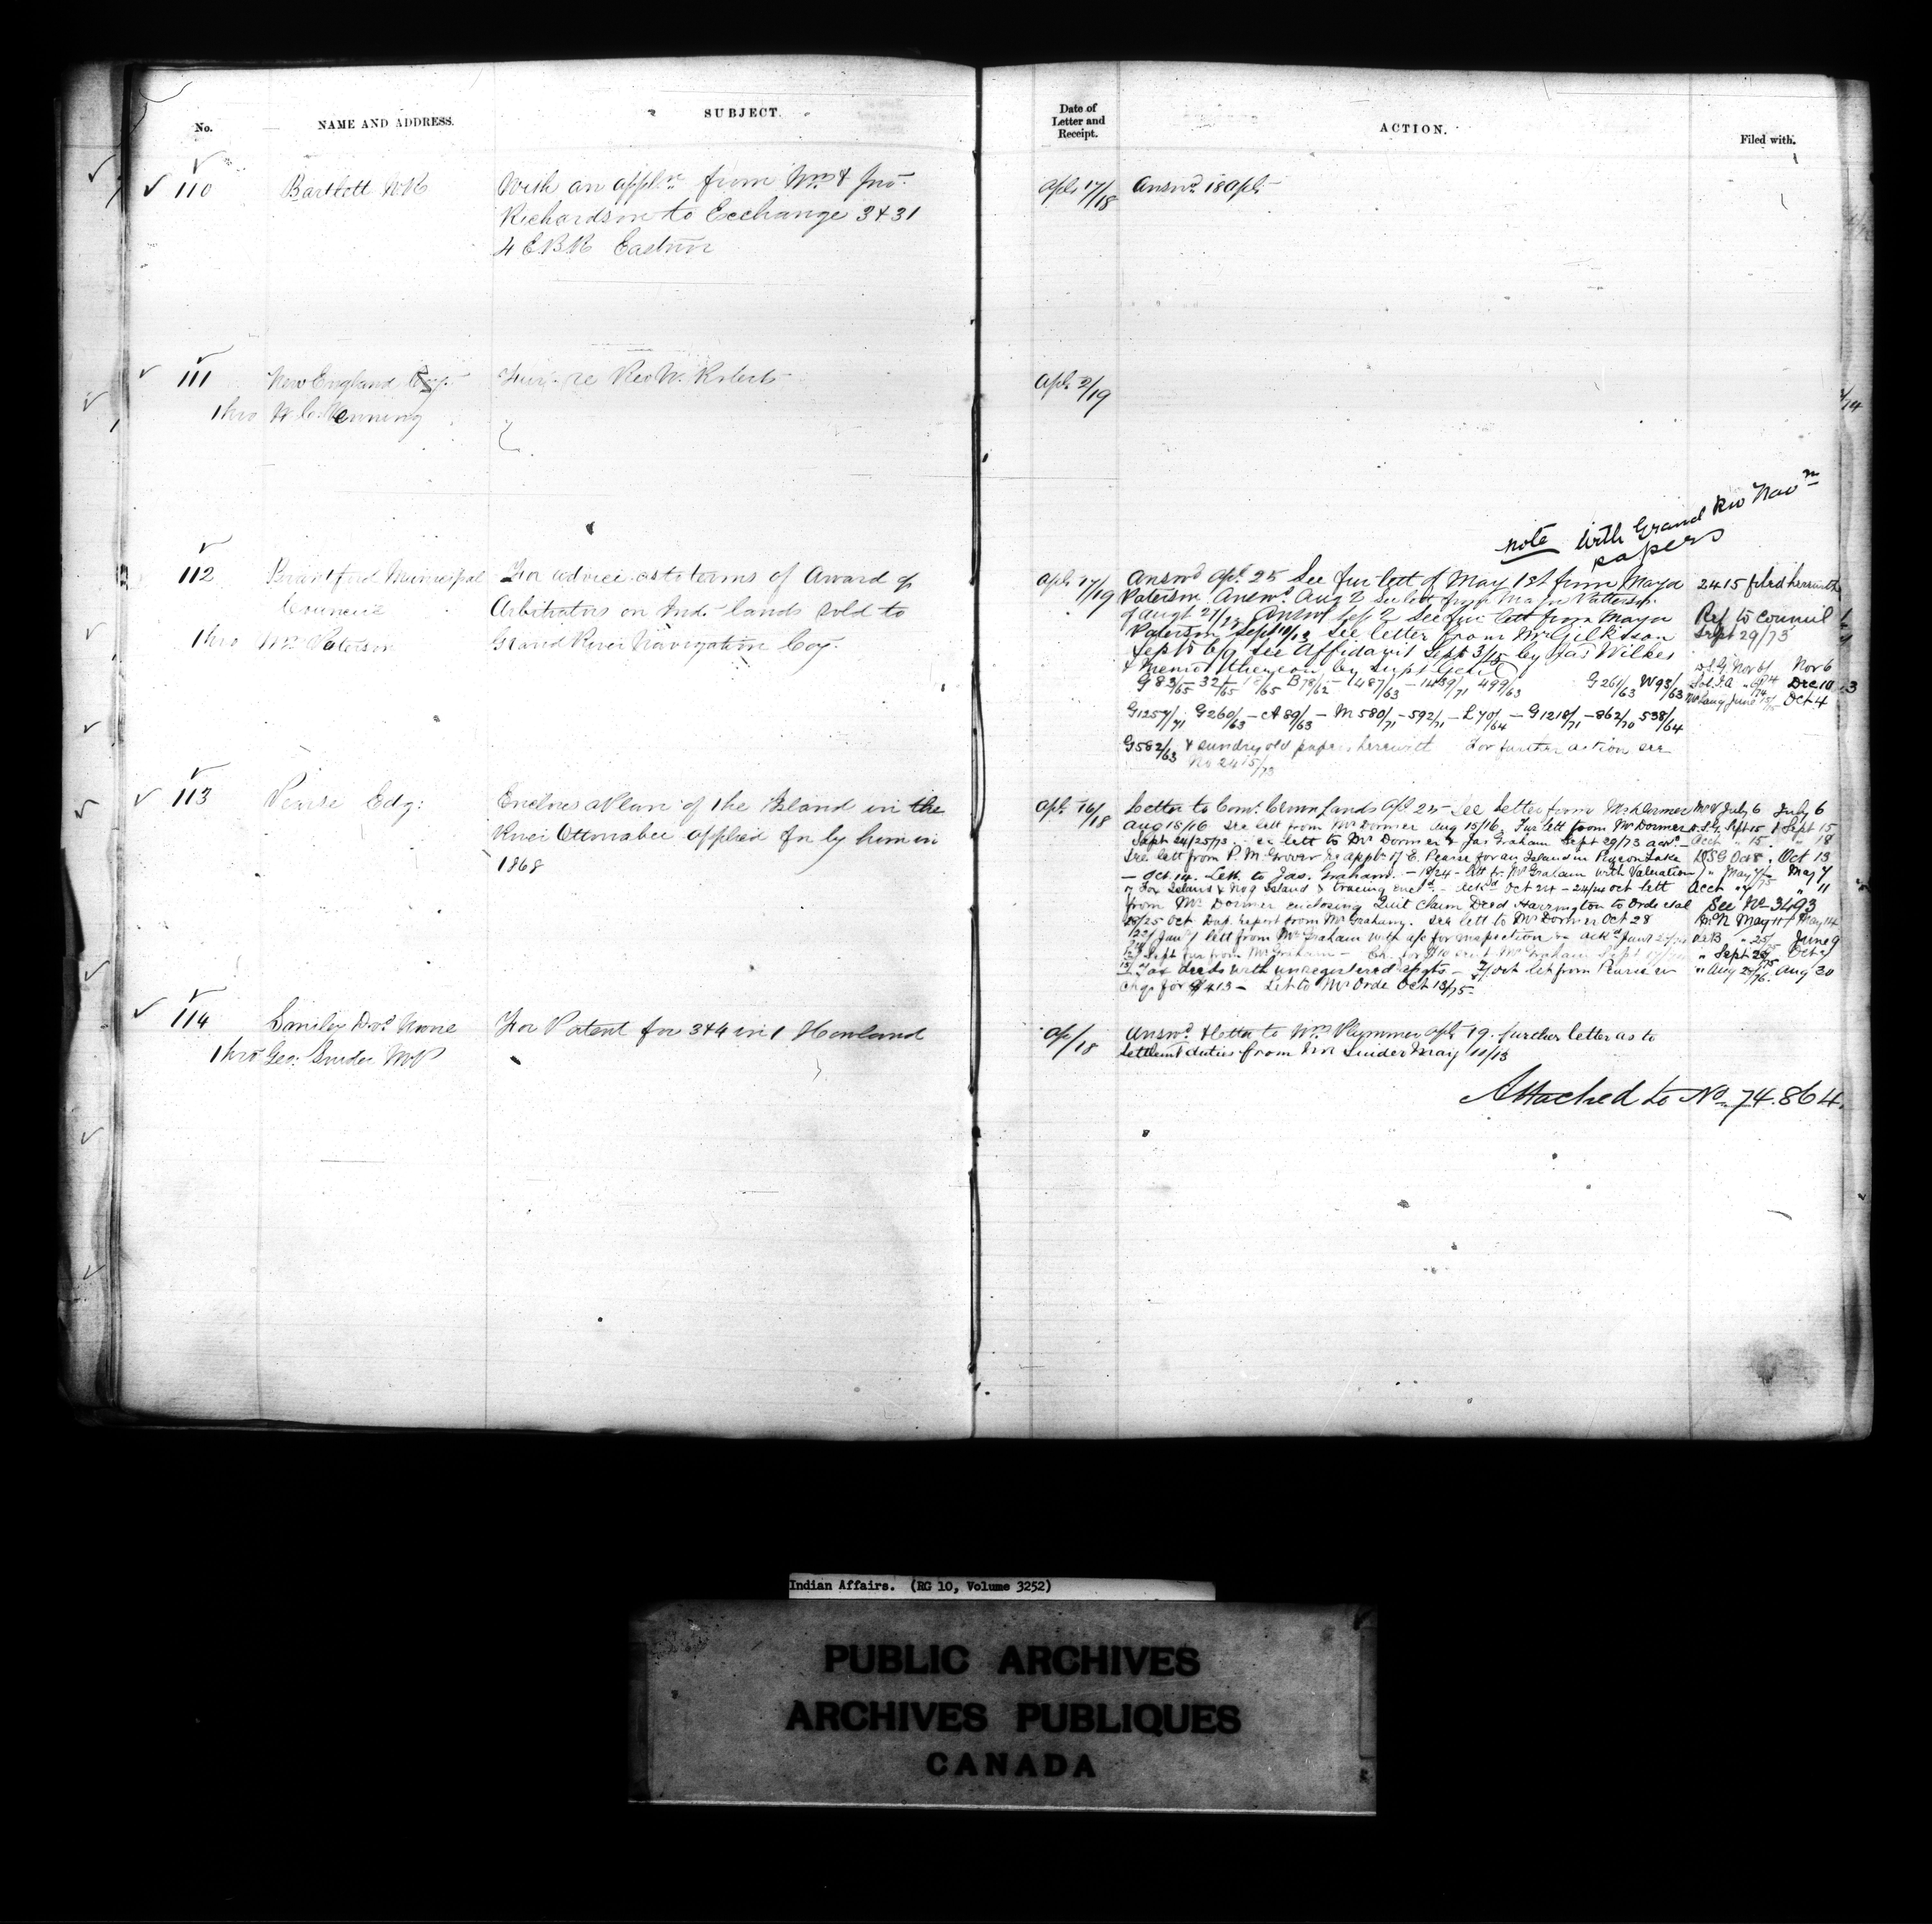 No. NAME AND ADDRESS. SUBJECT. Date of Letter and Receipt. ACTION. Filed with.
110 Bartlett WR With an appln. from Wm & Jno. Apl. 17/18 Answd. 18 Apl.
Richardson to Exchange 3 & 31
4 E.B.R. Eastnor
111 New England Coy. Fur. re Rev W. Roberts Apl. 2/19
thro W. C. Venning
note with Grand Riv Navn
papers
112 Brantford Municipal
Council
thro Wm. Paterson
For advice as to terms of Award of
Arbitrators on Ind. lands sold to
Grand River Navigation Coy.
Apl. 17/19
Answd Apl. 25 See fur lett of May 1st from Mayor
Paterson. Answd. Aug 2 See lett from Mayor Patterson
of Augt 27/ Answd Sept 2 See fur lett from Mayor
Paterson, Sept 10/12 See letter from Mr Gilkison
Sept 5 6/9 See Affidavit Sept 3/15 by Jas Wilkes
& Memo thereon by Supt Genl
G 83/65 32/65 /65 B78/62 - 1487/63 - 1439/71 499/63 G 261/63 W93/63
G1257/71 G260/63 - A 89/63 - M 580/71 - 592/71 - L 70/64 - G 1218/71 - 862/70 538/64
G582/63 & sundry old papers herewith For further action see
No 2415/73
2415 filed herewith
Ref to Council
Sept 29/73
D.S.G. Nov 6/ Nov 6
Dec 10
June Oct 4
113 Pearse Edg:
Encloses a Plan of the Island in the
River Ottonabee applied for by him in
1868
Apl. 16/18
Letter to Com. Crown Lands Apl 25 - See letter from Mr Dormer
Aug 15/16 See lett from Mr Dormer Aug 15/16. Fur lett from Mr Dormer
Sept 24/25/73. lett to Mr Dormer & Jas Graham Sept 29/73
See lett from P. M. Grover re appln of E. Pearse for an Island in Pigeon Lake
- Oct. 14. Lett. to Jas. Graham. - 18/24 - lett fr. Mr Graham with Valuation
of Fox Island & No 9 Island & tracing encld. - ackd Oct 24 - 24/ Oct lett
from Mr Dormer enclosing Quit Claim Deed Harrington to Orde
28/25 Oct Dup. Report from Mr Graham. See lett to Mr Dormer Oct 28
Jany lett from Mr Graham with a/c for inspection - ackd Jany
Sept fur from Mr Graham -
deeds with unregistered - Oct let from Pearse
Chq. for $413 - Let to Mr Orde Oct 13/75
July 6 July 6
D.S.G. Sept 15 Sept 15
Acct " 15 " 18
DSG Oct 8. Oct 13
May 7/75 May 7
Acct " " 11
See No 3493
May 11 May 14
June 9
" Sept 24 Oct
" Aug 29/76. Aug 30
114 Smiley Dvd. None For Patent for 3 & 4 in 1 Howland
thro Geo: Snider M.P.
Ap/18
Answd. & letter to Wm Plummer Apl. 19. further letter as to
Settlemt duties from Mr Snider May 10/13
Attached to No. 74.864.
Indian Affairs. (RG 10, Volume 3252)
PUBLIC ARCHIVES
ARCHIVES PUBLIQUES
CANADA